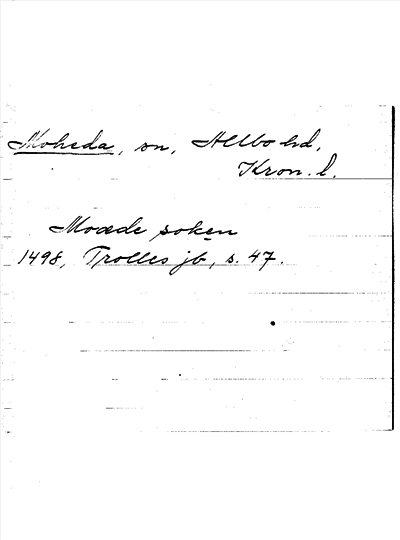 Moheda, sn, Allbo hd,
Kron. l.
Moæde soken
1498, Trolles jb, s. 47.